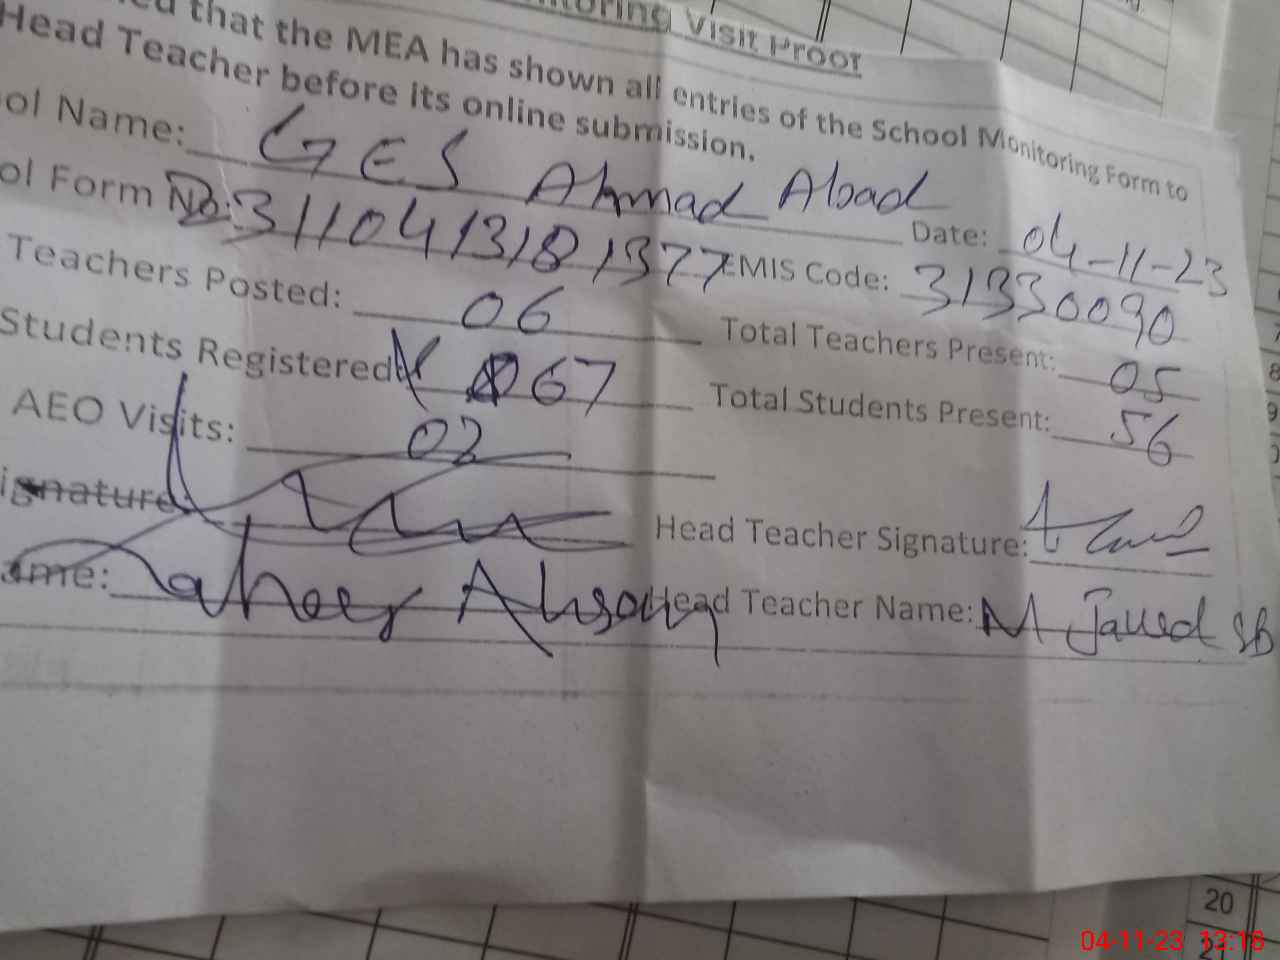 nitoring Visit Proof
ed that the MEA has shown all entries of the School Monitoring Form to
Head Teacher before its online submission.
ol Name: GES Ahmad Abad Date: 04-11-23
ol Form No: 3110413181377 EMIS Code: 31330090
Teachers Posted: 06 Total Teachers Present: 05
Students Registered: 67 Total Students Present: 56
AEO Visits: 02
ignature: Head Teacher Signature:
ame: Taheer Ahsan Head Teacher Name: M Javed sb
20
21
04-11-23 13:18